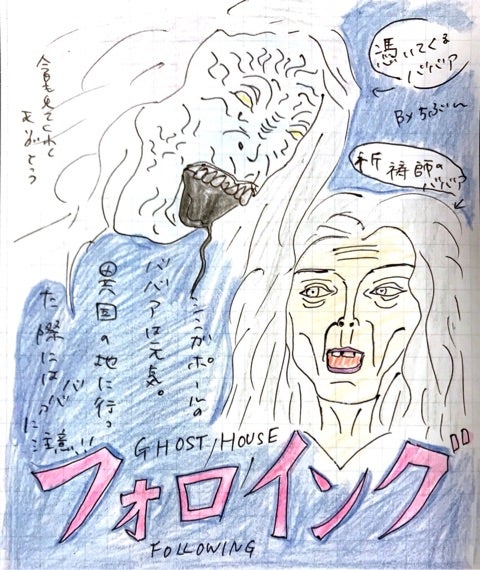 憑いてくる
ババァ
By ちぶー
祈祷師の
ババァ
今日も見てくれて
ありがとう
シンガポールの
ババァは元気。
異国の地に行っ
た際にはババァに
注意!!
GHOST/HOUSE
フォロインク
FOLLOWING